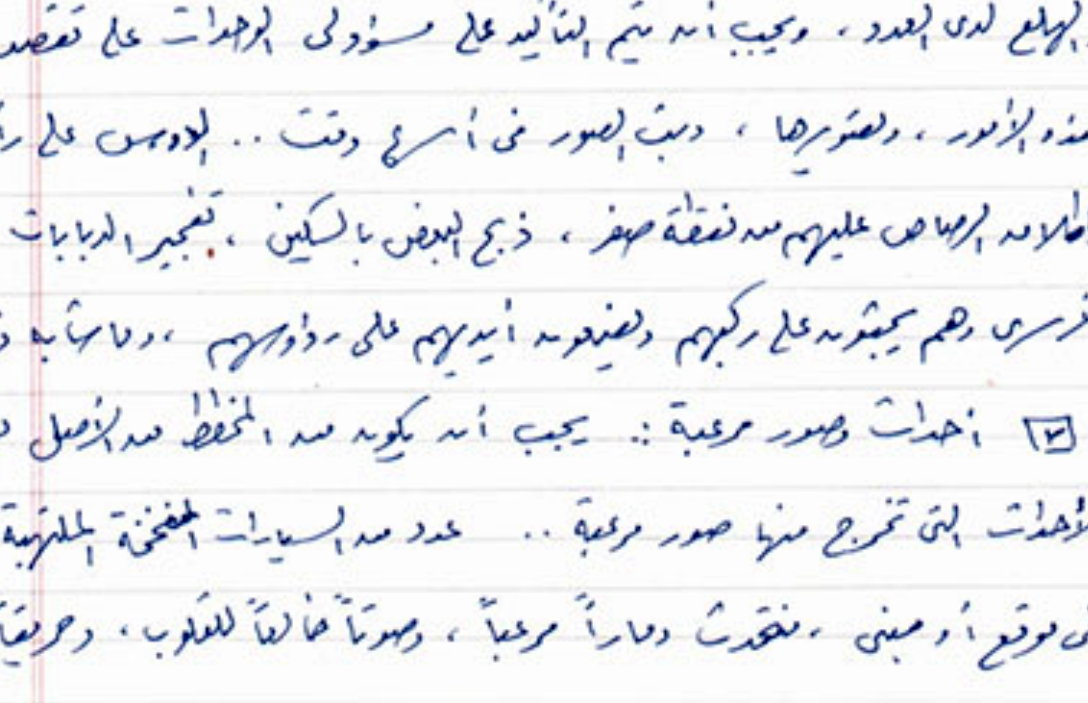 الهلع لدى العدو، ويجب أن يتم التأكيد على مسؤولي الوحدات على تقصد
هذه الأمور، وتصويرها، وبث الصور في أسرع وقت .. الدوس على
إطلاق الرصاص عليهم من نقطة صفر، ذبح البعض بالسكين، تفجير الدبابات
وهم يجثون على ركبهم ويضعون أيديهم على رؤوسهم، وما شابه
٣ أحداث وصور مرعبة: يجب أن يكون من المخطط من الأصل
الأحداث التي تخرج منها صور مرعبة .. عدد من السيارات المفخخة الملتهبة
موقع أو مبنى، فتحدث دماراً مرعباً، وصوتاً خالعاً للقلوب، وحريقاً